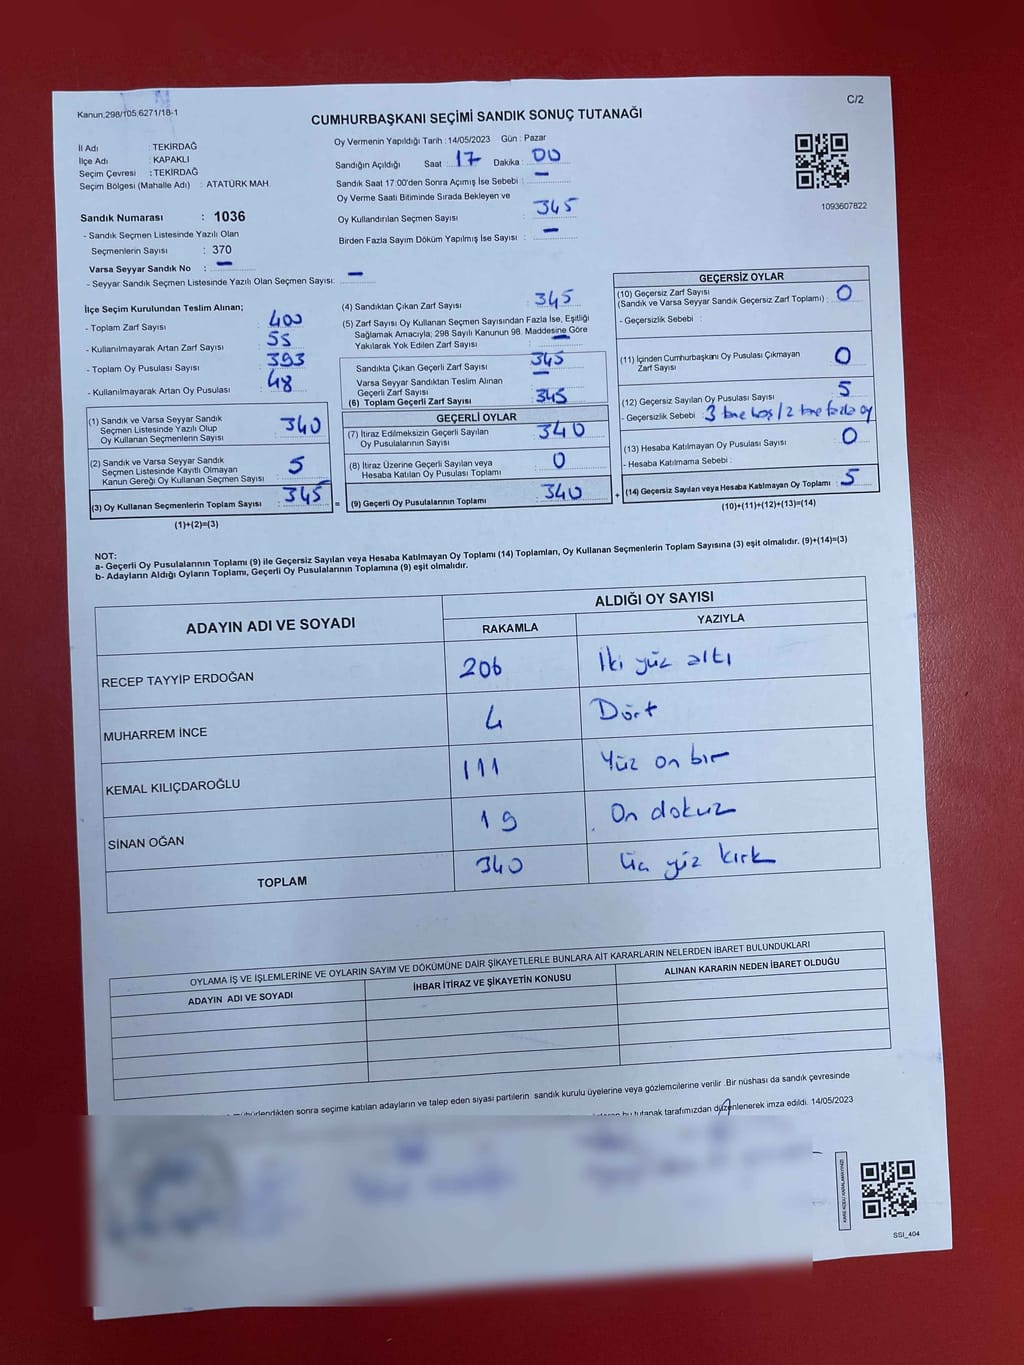 Kanun.298/105,6271/18-1
C/2
CUMHURBAŞKANI SEÇİMİ SANDIK SONUÇ TUTANAĞI
Oy Vermenin Yapıldığı Tarih : 14/05/2023 Gün : Pazar
İl Adı : TEKİRDAĞ
İlçe Adı : KAPAKLI
Seçim Çevresi : TEKİRDAĞ
Seçim Bölgesi (Mahalle Adı) : ATATÜRK MAH.
Sandık Numarası : 1036
- Sandık Seçmen Listesinde Yazılı Olan
Seçmenlerin Sayısı : 370
Varsa Seyyar Sandık No : -
- Seyyar Sandık Seçmen Listesinde Yazılı Olan Seçmen Sayısı: -
Sandığın Açıldığı Saat : 17 Dakika : 00
Sandık Saat 17:00'den Sonra Açımış İse Sebebi : -
Oy Verme Saati Bitiminde Sırada Bekleyen ve
Oy Kullandırılan Seçmen Sayısı : 345
Birden Fazla Sayım Döküm Yapılmış İse Sayısı : -
1093607822
İlçe Seçim Kurulundan Teslim Alınan;
- Toplam Zarf Sayısı : 400
- Kullanılmayarak Artan Zarf Sayısı : 55
- Toplam Oy Pusulası Sayısı : 393
- Kullanılmayarak Artan Oy Pusulası : 48
(1) Sandık ve Varsa Seyyar Sandık
Seçmen Listesinde Yazılı Olup
Oy Kullanan Seçmenlerin Sayısı : 340
(2) Sandık ve Varsa Seyyar Sandık
Seçmen Listesinde Kayıtlı Olmayan
Kanun Gereği Oy Kullanan Seçmen Sayısı : 5
(3) Oy Kullanan Seçmenlerin Toplam Sayısı : 345 =
(1)+(2)=(3)
(4) Sandıktan Çıkan Zarf Sayısı : 345
(5) Zarf Sayısı Oy Kullanan Seçmen Sayısından Fazla İse, Eşitliği
Sağlamak Amacıyla; 298 Sayılı Kanunun 98. Maddesine Göre
Yakılarak Yok Edilen Zarf Sayısı : -
Sandıkta Çıkan Geçerli Zarf Sayısı : 345
Varsa Seyyar Sandıktan Teslim Alınan
Geçerli Zarf Sayısı : -
(6) Toplam Geçerli Zarf Sayısı : 345
GEÇERLİ OYLAR
(7) İtiraz Edilmeksizin Geçerli Sayılan
Oy Pusulalarının Sayısı : 340
(8) İtiraz Üzerine Geçerli Sayılan veya
Hesaba Katılan Oy Pusulası Toplamı : 0
(9) Geçerli Oy Pusulalarının Toplamı : 340 +
GEÇERSİZ OYLAR
(10) Geçersiz Zarf Sayısı
(Sandık ve Varsa Seyyar Sandık Geçersiz Zarf Toplamı) : 0
- Geçersizlik Sebebi :
(11) İçinden Cumhurbaşkanı Oy Pusulası Çıkmayan
Zarf Sayısı : 0
(12) Geçersiz Sayılan Oy Pusulası Sayısı : 5
- Geçersizlik Sebebi : 3 tane boş / 2 tane fazla oy
(13) Hesaba Katılmayan Oy Pusulası Sayısı : 0
- Hesaba Katılmama Sebebi :
(14) Geçersiz Sayılan veya Hesaba Katılmayan Oy Toplamı : 5
(10)+(11)+(12)+(13)=(14)
NOT:
a- Geçerli Oy Pusulalarının Toplamı (9) ile Geçersiz Sayılan veya Hesaba Katılmayan Oy Toplamı (14) Toplamları, Oy Kullanan Seçmenlerin Toplam Sayısına (3) eşit olmalıdır. (9)+(14)=(3)
b- Adayların Aldığı Oyların Toplamı, Geçerli Oy Pusulalarının Toplamına (9) eşit olmalıdır.
ADAYIN ADI VE SOYADI
ALDIĞI OY SAYISI
RAKAMLA YAZIYLA
RECEP TAYYİP ERDOĞAN 206 İki yüz altı
MUHARREM İNCE 4 Dört
KEMAL KILIÇDAROĞLU 111 Yüz on bir
SİNAN OĞAN 19 On dokuz
TOPLAM 340 Üç yüz kırk
OYLAMA İŞ VE İŞLEMLERİNE VE OYLARIN SAYIM VE DÖKÜMÜNE DAİR ŞİKAYETLERLE BUNLARA AİT KARARLARIN NELERDEN İBARET BULUNDUKLARI
ADAYIN ADI VE SOYADI İHBAR İTİRAZ VE ŞİKAYETİN KONUSU ALINAN KARARIN NEDEN İBARET OLDUĞU
sonra seçime katılan adayların ve talep eden siyasi partilerin sandık kurulu üyelerine veya gözlemcilerine verilir .Bir nüshası da sandık çevresinde
bu tutanak tarafımızdan düzenlenerek imza edildi. 14/05/2023
SSI_404